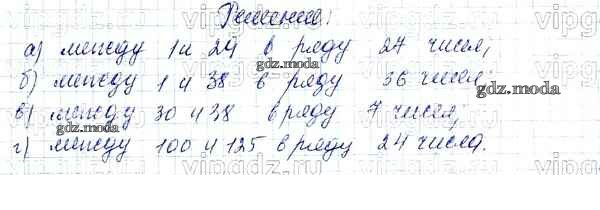 Решение:
а) между 1 и 29 в ряду 27 чисел;
б) между 1 и 38 в ряду 36 чисел;
в) между 30 и 38 в ряду 7 чисел;
г) между 100 и 125 в ряду 24 числа.
gdz.moda
gdz.moda
gdz.moda
gdz.moda
vipgdz.ru